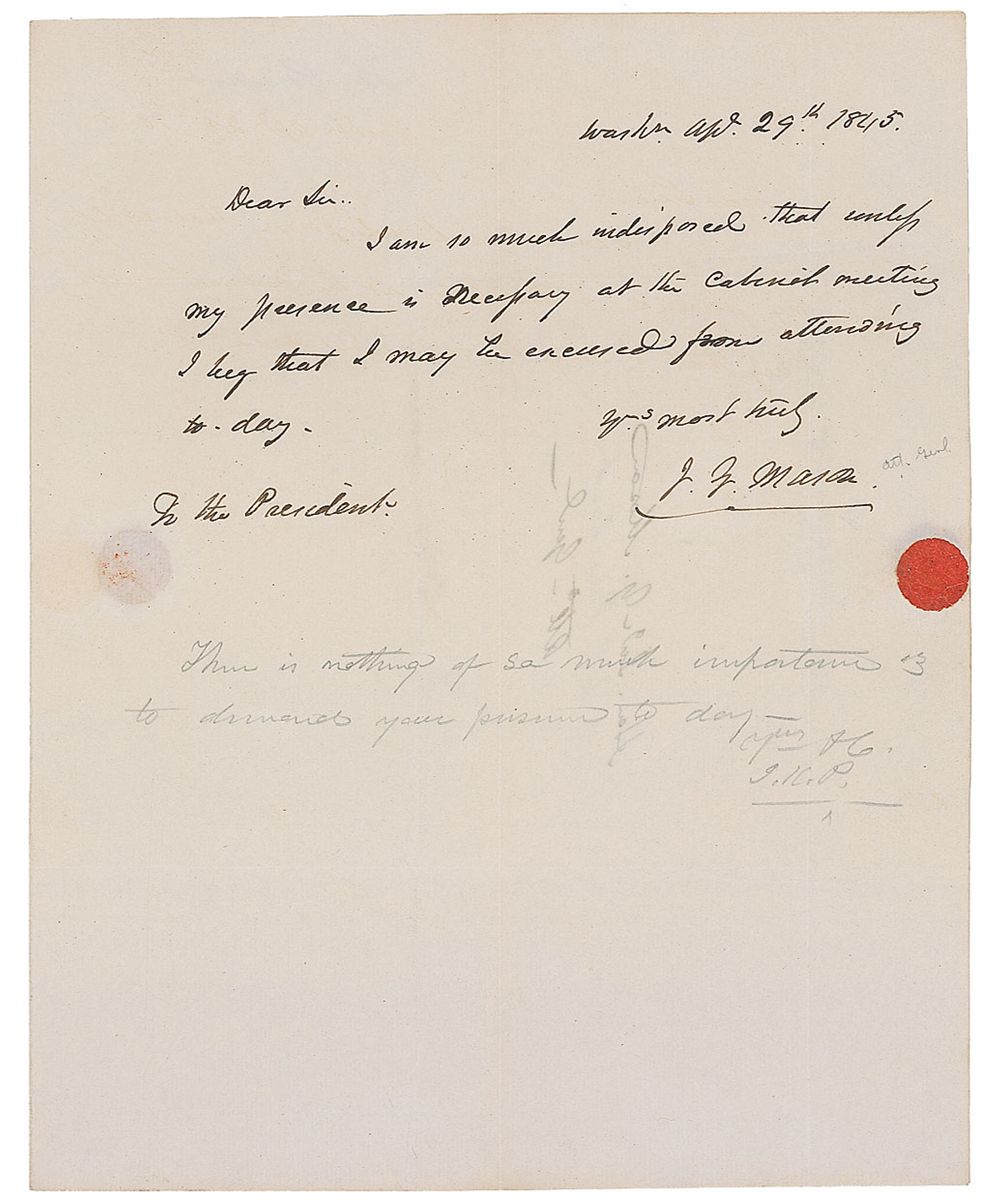 Washn. Apl. 29th 1845.
Dear Sir.
I am so much indisposed that unless
my presence is necessary at the Cabinet meeting
I beg that I may be excused from attending
to-day.
Yrs most truly.
J. Y. Mason.
Att. Genl.
To the President.
There is nothing of so much importance as
to demand your presence to day—
Yours &C.
J.K.P.